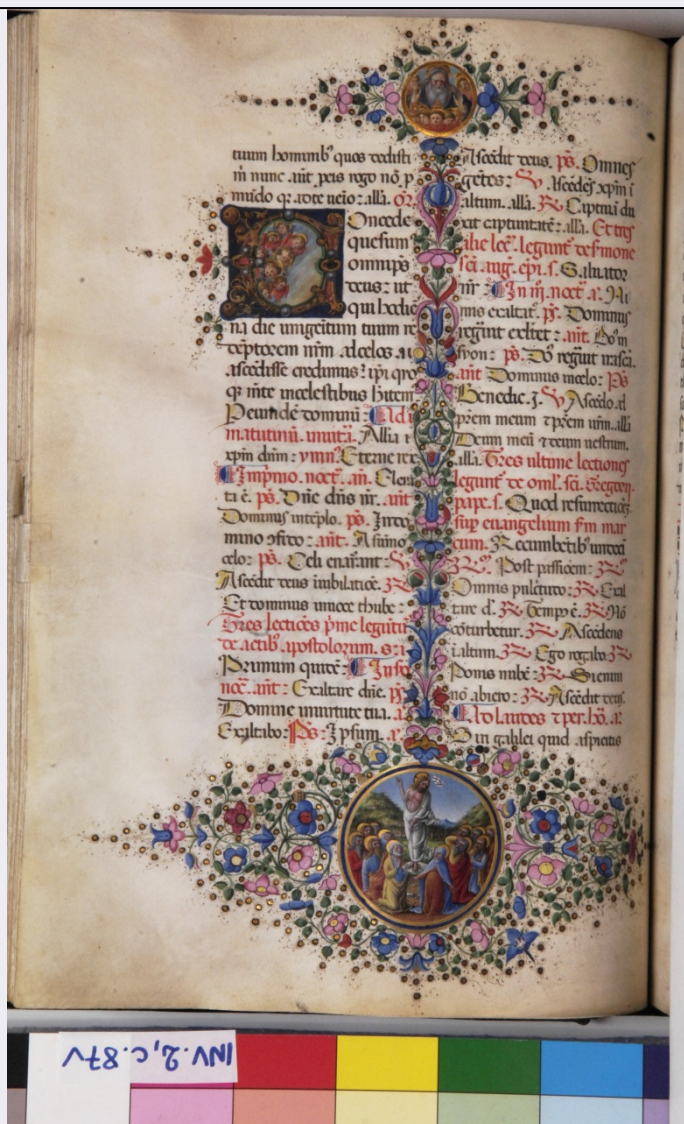 tuum hominibꝰ quos dedisti
m nunc aūt ꝓ eis rogo nō ꝓ
mūdo qꝛ a te uēio : alla. Oꝛ̄.
Concede
quesumꝰ
omnip̄s
deus : ut
qui hodie
na die unigenitum tuum re
demptorem nr̄m ad celos a
ascēdisse credimus : ipi quo
qꝫ mēte in celestibus hītem
Per eundē dominū : Ad
matutinū. inuita. Alla
xp̄m dūm : ymnꝰ. Eterne rex
In primo. noct̄. an̄. Eleua
ta ē. ps̄. Dn̄e dn̄s nr̄. ant̄
Dominus in tēplo. ps̄. In do
mino ↄfido : ant̄. A summo
celo : ps̄. Celi enarrant :
Ascēdit deus in iubilatiōe.
Et dominus in uoce thube :
Tres lectiōes pꝛime legūtur
de actibꝰ apostolorum. s. i
Primum quidē : In scd̄o
noc̄. ant̄ : Exaltare dn̄e. ps̄
Domine in uirtute tua. a.
Exaltabo : Ps̄ : In ipsum. a.
Ascēdit deus. ps̄. Omnes
gētes : Ascēdēs xp̄m i
altum. alla. Captiuā du
xit captiuitatē : alla. Et tres
alie lec̄. legunt̄ de sermone
sc̄i aug. ep̄i. s. Saluator
nr̄ : In iii. noct̄. a. Ni
mis exaltatꝰ. ps̄. Dominus
regnauit exultet : ant̄. Dn̄s in
syon : ps̄. Dn̄s regnauit irascā.
ant̄ Dominus in celo : Ps̄
Benedic. j. Ascēdo ad
prēm meum ⁊ prēm urm̄. alla
Deum meū ⁊ deum uestrum.
alla. Tres ultime lectiones
legunt̄ de omt̄. sc̄i Gregorii
pape. s. Quod resurrectiōē
suꝑ euangelium s̄m mar
cum. Recumbētibꝰ undecī
Post passionem :
Omnis pulcritudo : Exal
tare d. Tempꝰ ē. Nō
cōturbetur. Ascēdens
i altum. Ego rogabo.
Ponis nubē : Si enim
nō abiero : Ascēdit deus.
Ad laudes ⁊ per. ho. a.
Viri galilei quid aspicitis
INV. 2, c. 87v